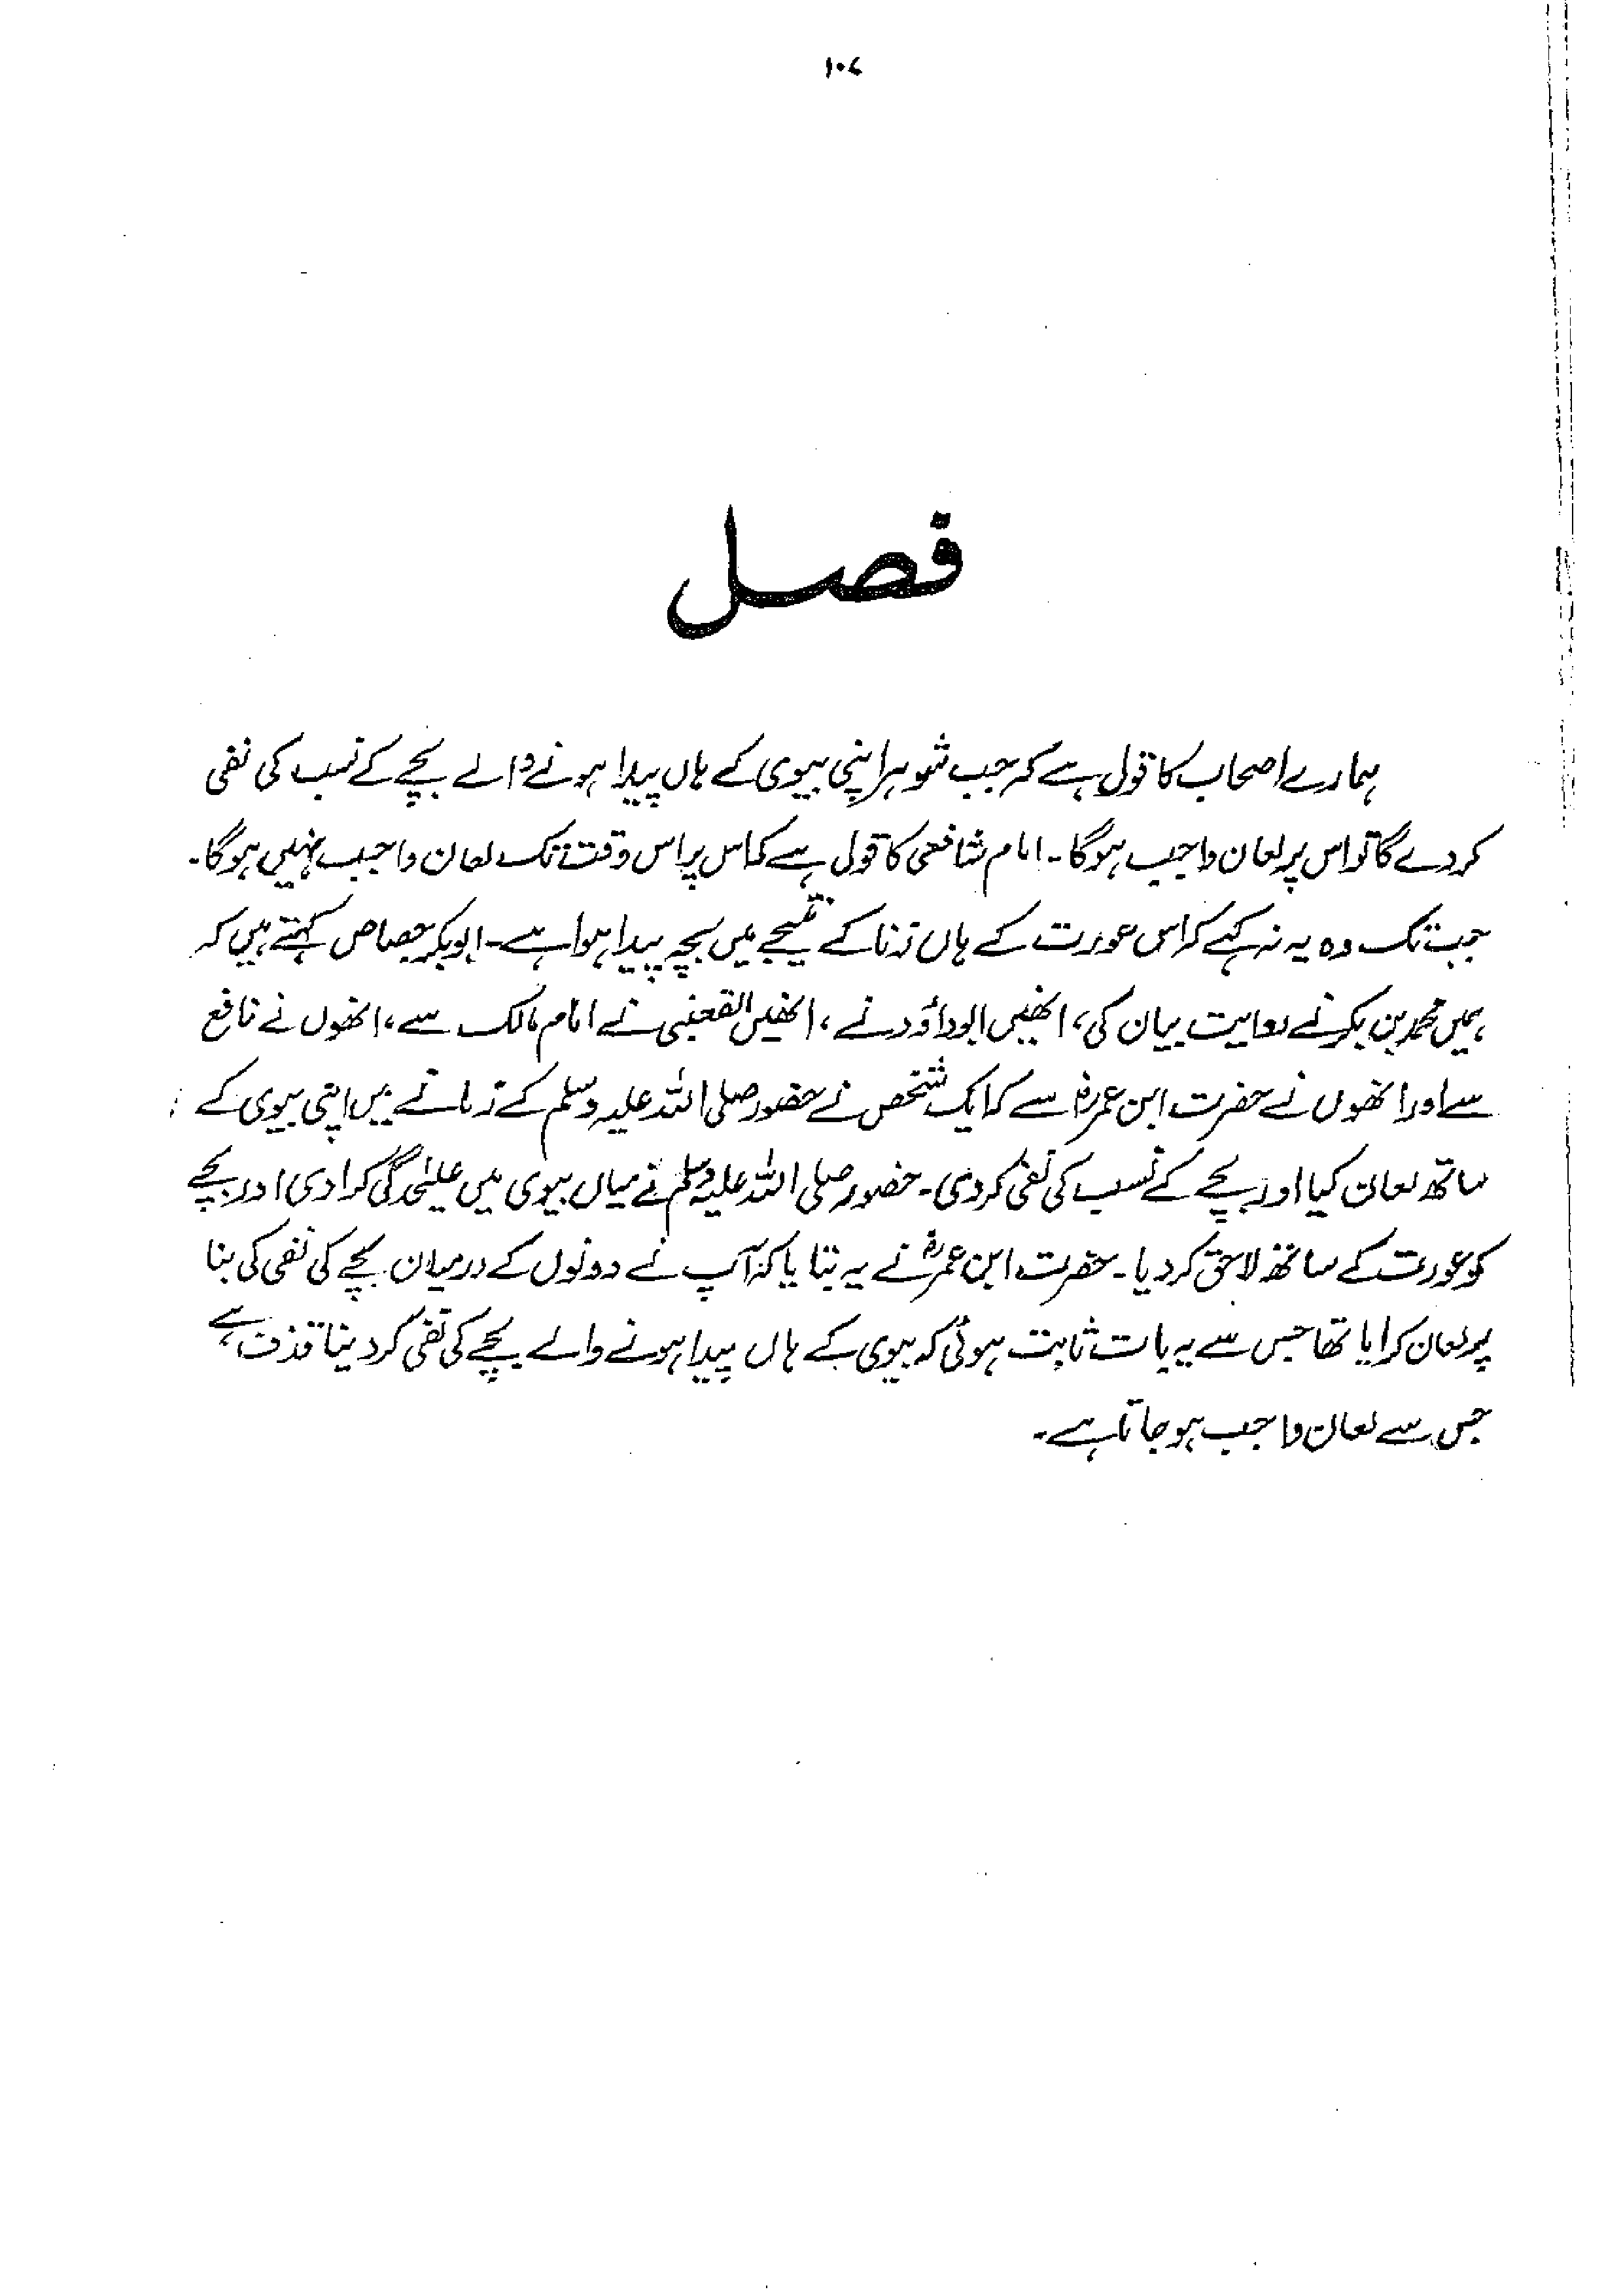 ۱۰۷
فصل
ہمارے اصحاب کا قول ہے کہ جب شوہر اپنی بیوی کے ہاں پیدا ہونے والے بچے کے نسب کی نفی
کردے گا تو اس پر لعان واجب ہوگا۔ امام شافعی کا قول ہے کہ اس پر اس وقت تک لعان واجب نہیں ہوگا۔
جب تک وہ یہ نہ کہے کہ اس عورت کے ہاں زنا کے نتیجے میں بچہ پیدا ہوا ہے۔ ابوبکر جصاص کہتے ہیں کہ
ہمیں محمد بن بکر نے روایت بیان کی، انھیں ابوداؤد نے، انھیں القعنبی نے امام مالک سے، انھوں نے نافع
سے اور انھوں نے حضرت ابن عمرؓ سے کہ ایک شخص نے حضور صلی اللہ علیہ وسلم کے زمانے میں اپنی بیوی کے
ساتھ لعان کیا اور بچے کے نسب کی نفی کردی۔ حضور صلی اللہ علیہ وسلم نے میاں بیوی میں علیٰحدگی کرادی اور بچے
کو عورت کے ساتھ لاحق کردیا۔ حضرت ابن عمرؓ نے یہ بتایا کہ آپ نے دونوں کے درمیان بچے کی نفی کی بنا
پر لعان کرایا تھا جس سے یہ بات ثابت ہوئی کہ بیوی کے ہاں پیدا ہونے والے بچے کی نفی کردینا قذف ہے
جس سے لعان واجب ہوجاتا ہے۔